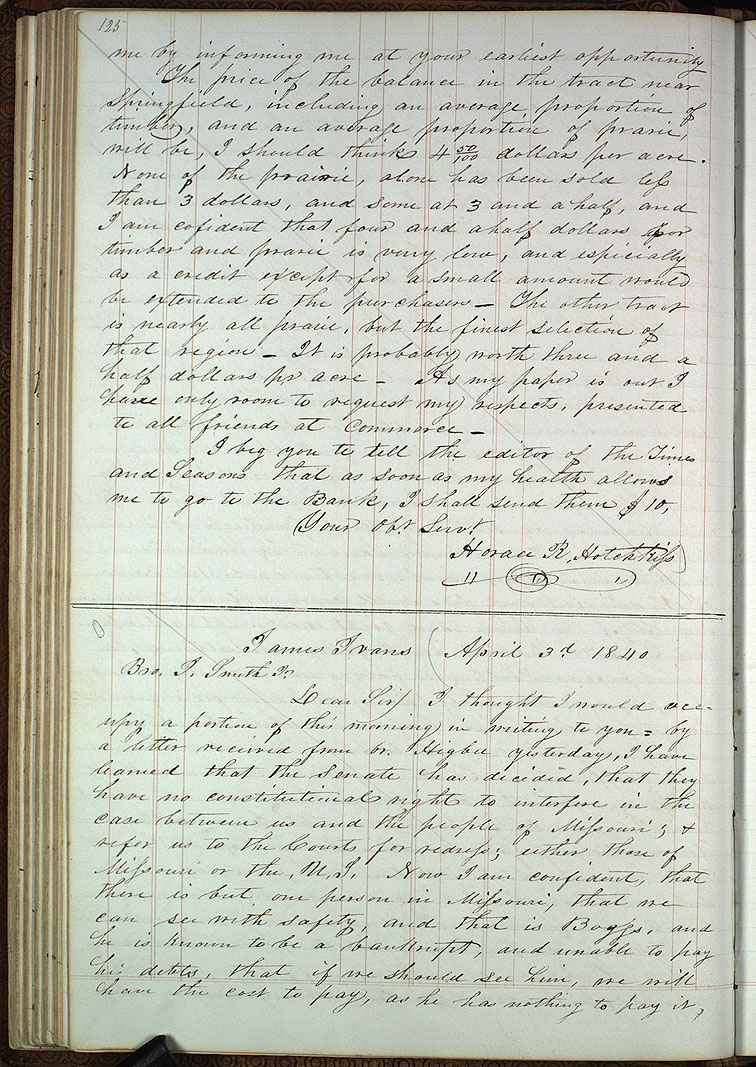 125
me by informing me at your earliest opportunity
The price of the balance in the tract near
Springfield, including an average proportion of
timber, and an average proportion of prarie,
will be, I should think 4 50/100 dollars per acre.
None of the prairie, alone has been sold less
than 3 dollars, and some at 3 and a half, and
I am cofident that four and a half dollars for
timber and prarie is very low, and especially
as a credit except for a small amount would
be extended to the purchasers — The other tract
is nearly all prarie, but the finest selection of
that region — It is probably worth three and a
half dollars pr acre — As my paper is out I
have only room to request my respects, presented
to all friends at Commerce —
I beg you to tell the editor of the Times
and Seasons that as soon as my health allows
me to go to the Bank, I shall send them $10,
Your Obt. Servt.
Horace R. Hotchkiss
James Ivans ( April 3d 1840
Bro. J. Smith Jr
Dear Sir/ I thought I would occ=
upy a portion of this morning in writing to you = by
a letter received from br. Higbee yesterday, I have
learned that the Senate has decided, that they
have no constitutional right to interfere in the
case between us and the people of Missouri; &
refer us to the Courts for redress; either those of
Missouri or the, M, S. Now I am confident, that
there is but one person in Missouri, that we
can see with safety and that is Boggs, and
he is known to be a bankrupt, and unable to pay
his debts, that if we should see him, we will
have the cost to pay, as he has nothing to pay it,